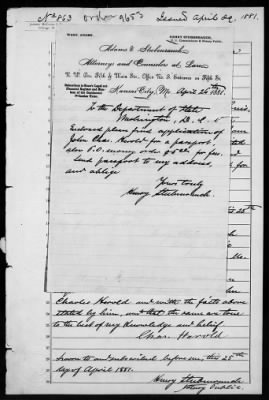 No 863 order 9653 Issued April 29, 1881.
WASH. ADAMS. HENRY STUBENRAUCH,
U. S. Commissioner & Notary Public.
Adams & Stubenrauch
Attorneys and Counselors at Law
N. W. Cor. Fifth & Main Sts., Office No. 3, Entrance on Fifth St.
Kansas City, Mo. April 26th 1881.
To the Department of State
Washington, D. C.
Enclosed please find application of
John Chas. Harold for a passport,
also P.O. money order for fee.
Send passport to my address,
and oblige
Yours truly
Henry Stubenrauch
Charles Harold and with the facts above
stated by him, and that the same are true
to the best of my knowledge and belief
Chas. Harold
Sworn to and subscribed before me this 25th
day of April 1881.
Henry Stubenrauch
Notary Public.